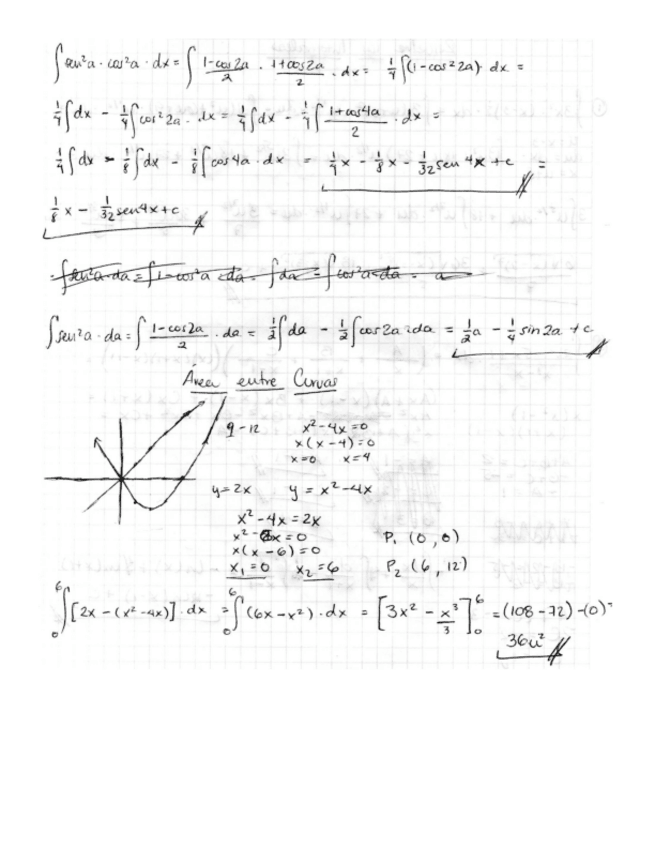 ∫sen²a · cos²a · dx = ∫ 1-cos2a/2 · 1+cos2a/2 · dx = 1/4 ∫(1-cos²2a) dx =
1/4 ∫dx - 1/4 ∫cos²2a · dx = 1/4 ∫dx - 1/4 ∫ 1+cos4a/2 · dx =
1/4 ∫dx - 1/8 ∫dx - 1/8 ∫cos4a · dx = 1/4 x - 1/8 x - 1/32 sen 4x + c =
1/8 x - 1/32 sen4x + c
∫sen²a · da = ∫ 1-cos2a/2 · da = 1/2 ∫da - 1/2 ∫cos2a · da = 1/2 a - 1/4 sin2a + c
Área entre Curvas
x²-4x=0
x(x-4)=0
x=0 x=4
y=2x y = x²-4x
x²-4x=2x
x²-6x=0
x(x-6)=0
P₁ (0, 0)
x₁=0 x₂=6
P₂ (6, 12)
∫₀⁶ [2x-(x²-4x)] · dx = ∫₀⁶ (6x-x²) · dx = [3x² - x³/3]₀⁶ = (108-72)-(0)=
36u²